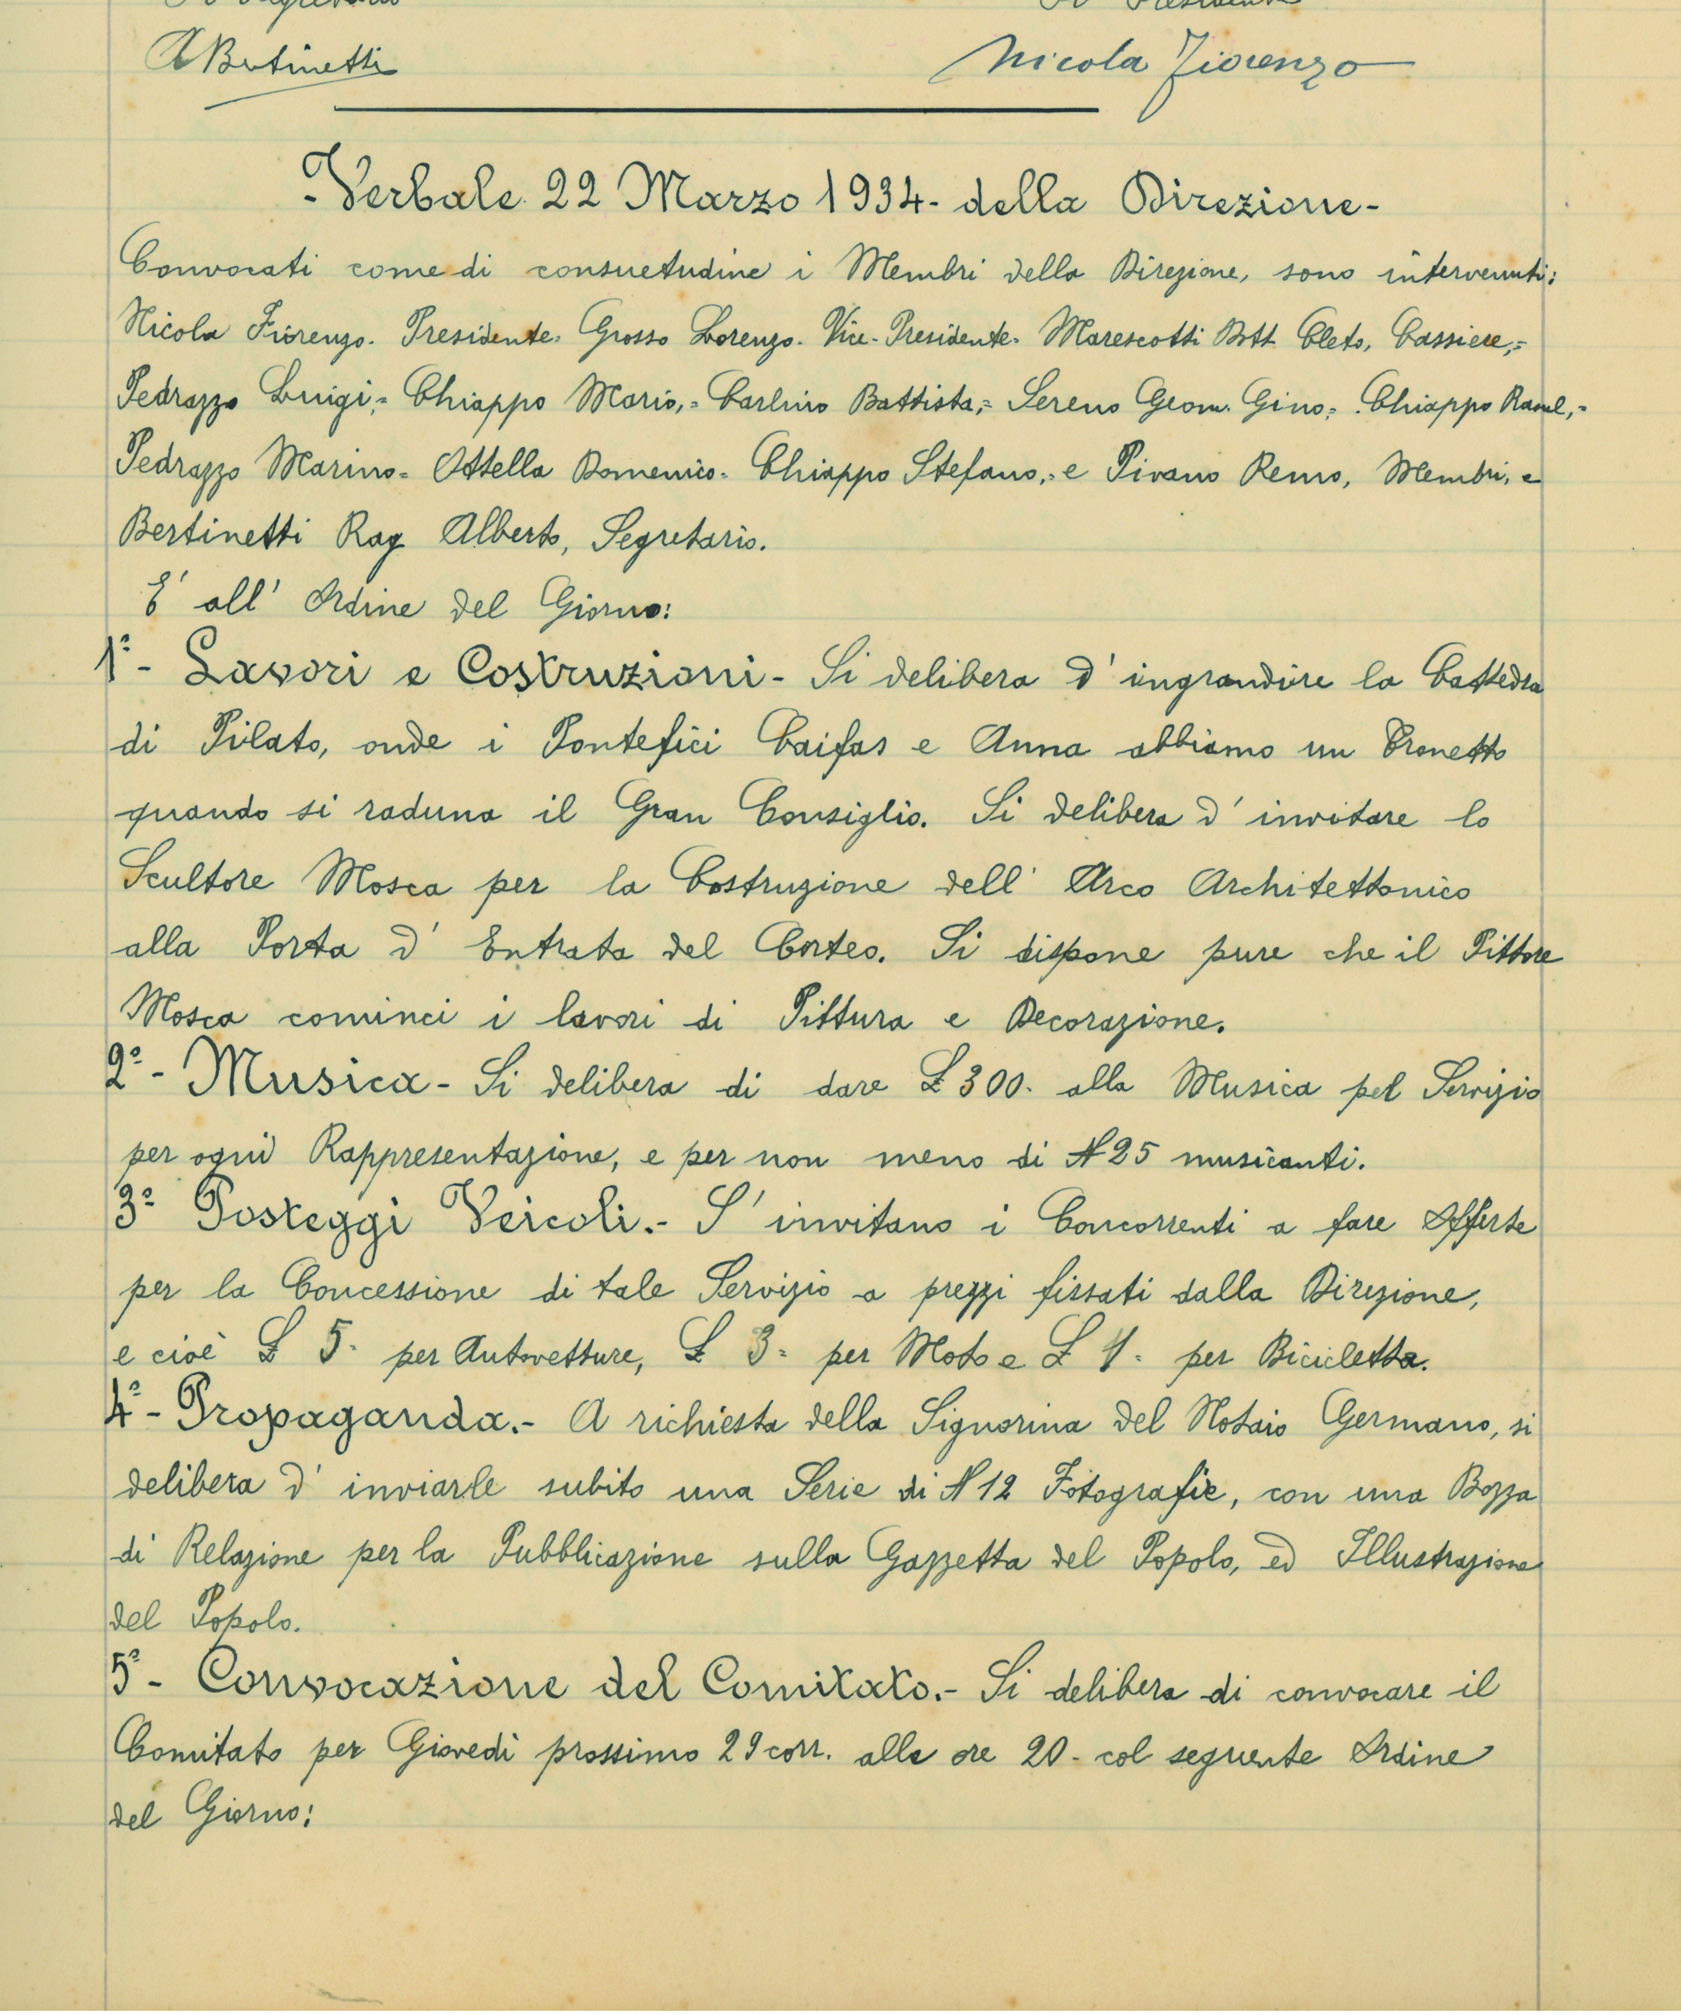 Il Segretario Il Presidente
ABertinetti Nicola Fiorenzo
-Verbale 22 Marzo 1934- della Direzione-
Convocati come di consuetudine i Membri della Direzione, sono intervenuti:
Nicola Fiorenzo. Presidente. Grosso Lorenzo. Vice-Presidente. Marescotti Dott. Cleto, Cassiere,=
Pedrazzo Luigi,= Chiappo Mario,= Carlino Battista,= Sereno Geom. Gino,= Chiappo Raoul,=
Pedrazzo Marino= Ottella Domenico= Chiappo Stefano,= e Pivano Remo, Membri, e
Bertinetti Rag Alberto, Segretario.
E' all' Ordine del Giorno:
1º- Lavori e Costruzioni- Si delibera d' ingrandire la Cattedra
di Pilato, onde i Pontefici Caifas e Anna abbiamo un Tronetto
quando si raduna il Gran Consiglio. Si delibera d' invitare lo
Scultore Mosca per la Costruzione dell' Arco Architettonico
alla Porta d' Entrata del Corteo. Si dispone pure che il Pittore
Mosca cominci i lavori di Pittura e Decorazione.
2º- Musica- Si delibera di dare £ 300. alla Musica pel Servizio
per ogni Rappresentazione, e per non meno di N 25 musicanti.
3º Posteggi Veicoli.- S' invitano i Concorrenti a fare Offerte
per la Concessione di tale Servizio a prezzi fissati dalla Direzione,
e cioè £ 5= per Autovetture, £ 3= per Moto e £ 1= per Bicicletta.
4º- Propaganda.- A richiesta della Signorina del Notaio Germano, si
delibera d' inviarle subito una Serie di N 12 Fotografie, con una Bozza
di Relazione per la Pubblicazione sulla Gazzetta del Popolo, ed Illustrazione
del Popolo.
5º- Convocazione del Comitato.- Si delibera di convocare il
Comitato per Giovedì prossimo 29 corr. alle ore 20- col seguente Ordine
del Giorno: